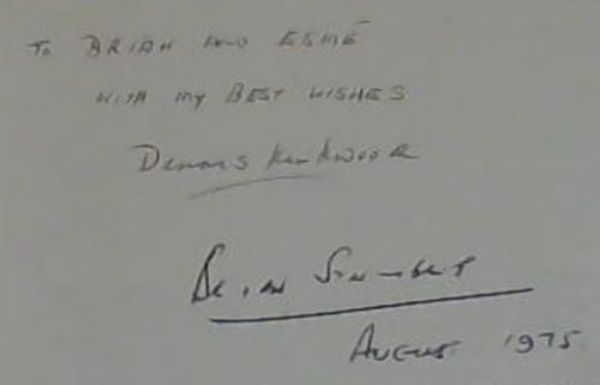 To BRIAN AND ESMÉ
WITH my BEST WISHES
Dennis Kirkwood
Brian
August 1975